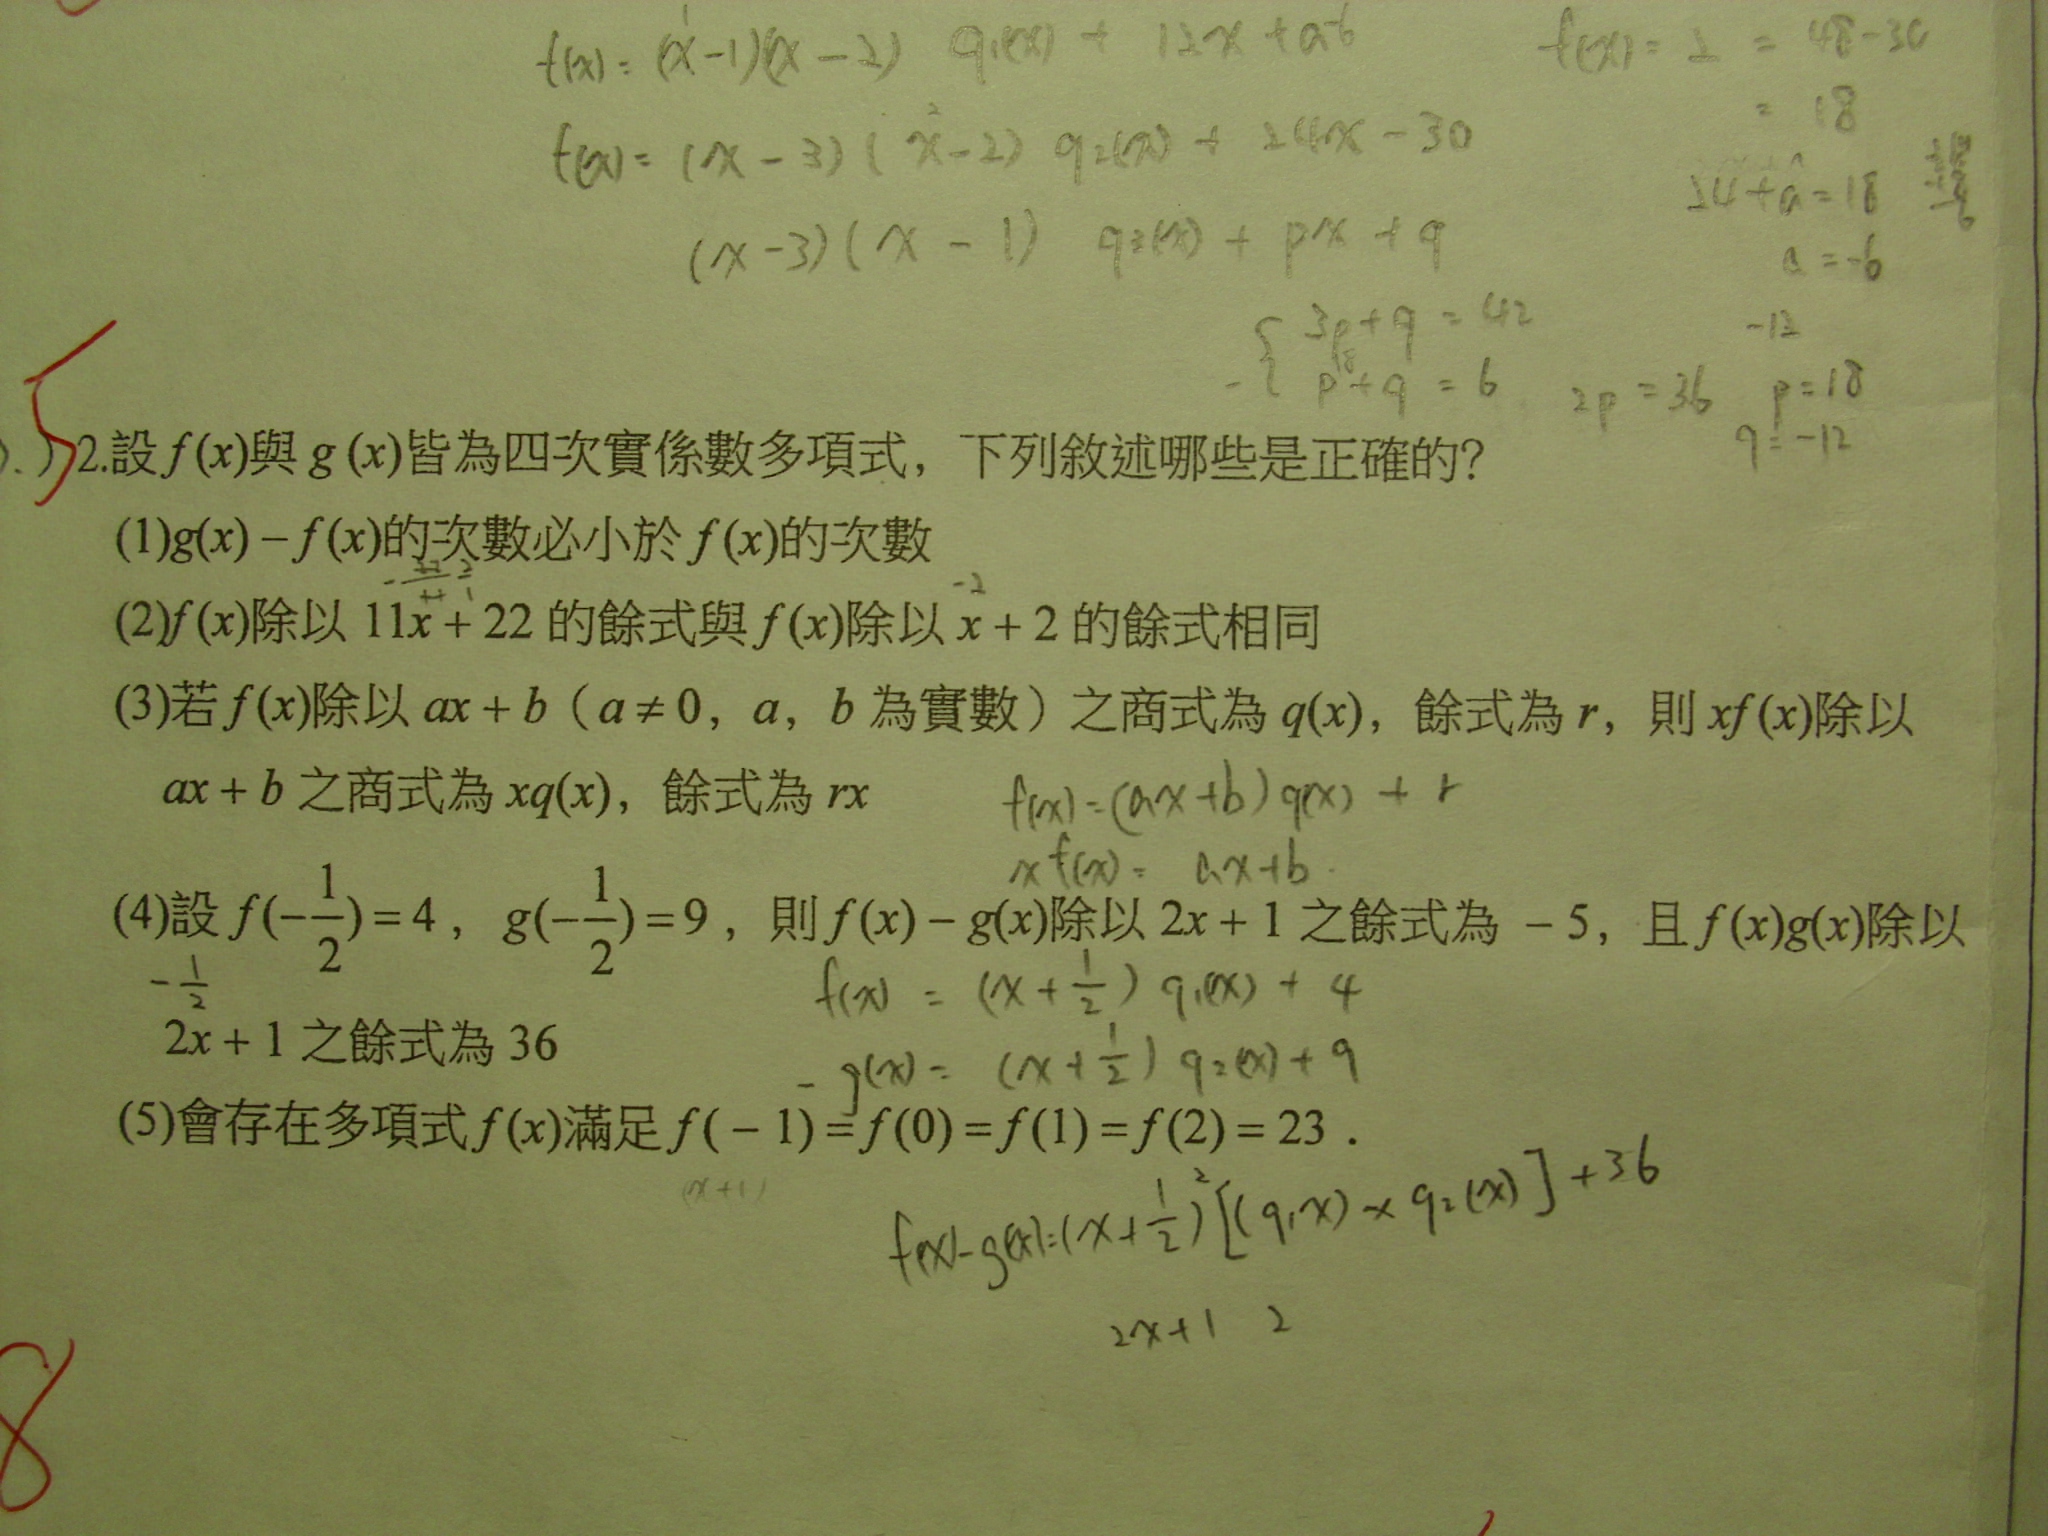 f(x) = (x-1)(x-2) q₁(x) + 12x + a-6
f(x) = 2 = 48-30
= 18
f(x) = (x-3)(x-2) q₂(x) + 24x-30
24+a=18
(x-3)(x-1) q₃(x) + px+q
a=-6
3p+q=42
-12
- p+q=6
18
2p=36
p=18
q=-12
2.設f(x)與g(x)皆為四次實係數多項式，下列敘述哪些是正確的?
(1)g(x)–f(x)的次數必小於f(x)的次數
-2
(2)f(x)除以 11x+22 的餘式與f(x)除以 x+2 的餘式相同
(3)若f(x)除以 ax+b（a≠0，a，b 為實數）之商式為 q(x)，餘式為 r，則 xf(x)除以
ax+b 之商式為 xq(x)，餘式為 rx
f(x)=(ax+b)q(x)+r
xf(x)= ax+b
(4)設 f(-1/2)=4，g(-1/2)=9，則f(x)–g(x)除以 2x+1 之餘式為 –5，且f(x)g(x)除以
-1/2
f(x) = (x+1/2) q₁(x)+4
2x+1 之餘式為 36
- g(x) = (x+1/2) q₂(x)+9
(5)會存在多項式f(x)滿足f(–1)=f(0)=f(1)=f(2)=23．
(x+1)
f(x)-g(x)=(x+1/2)²[(q₁x)×q₂(x)]+36
2x+1 2
8